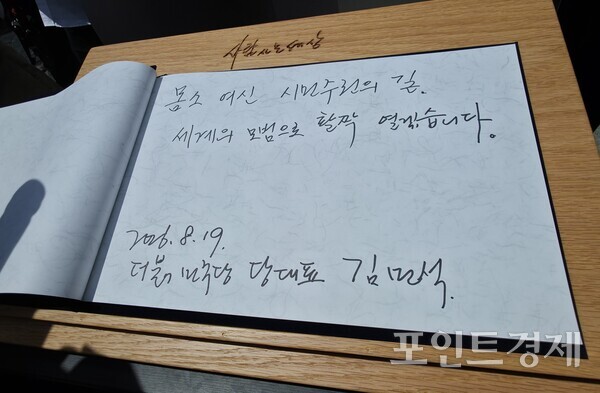 사람사는세상
몸소 여신 시민주권의 길.
세계의 모범으로 활짝 열겠습니다.
2026.8.19.
더불어민주당 당대표 김민석.
포인트경제